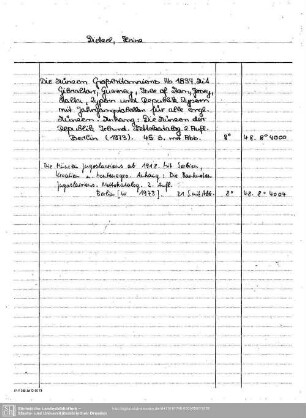 Dietzel, Heinz
Die Münzen Großbritanniens ab 1837. Mit
Gibraltar, Guernsey, Isle of Man, Jersey,
Malta, Zypern und Republik Zypern
mit Jahrgangstabellen für alle engl.
Münzen. Anhang: Die Münzen der
Republik Irland. Nettokatalog. 2. Aufl.
Berlin (1973). 45 S. mit Abb. 8° 48. 8° 4000
Die Münzen Jugoslawiens ab 1918. Mit Serbien,
Kroatien u. Montenegro. Anhang: Die Banknoten
Jugoslawiens. Nettokatalog. 2. Aufl.
Berlin [W 1973]. 21 S. mit Abb. 8° 48. 8° 4004